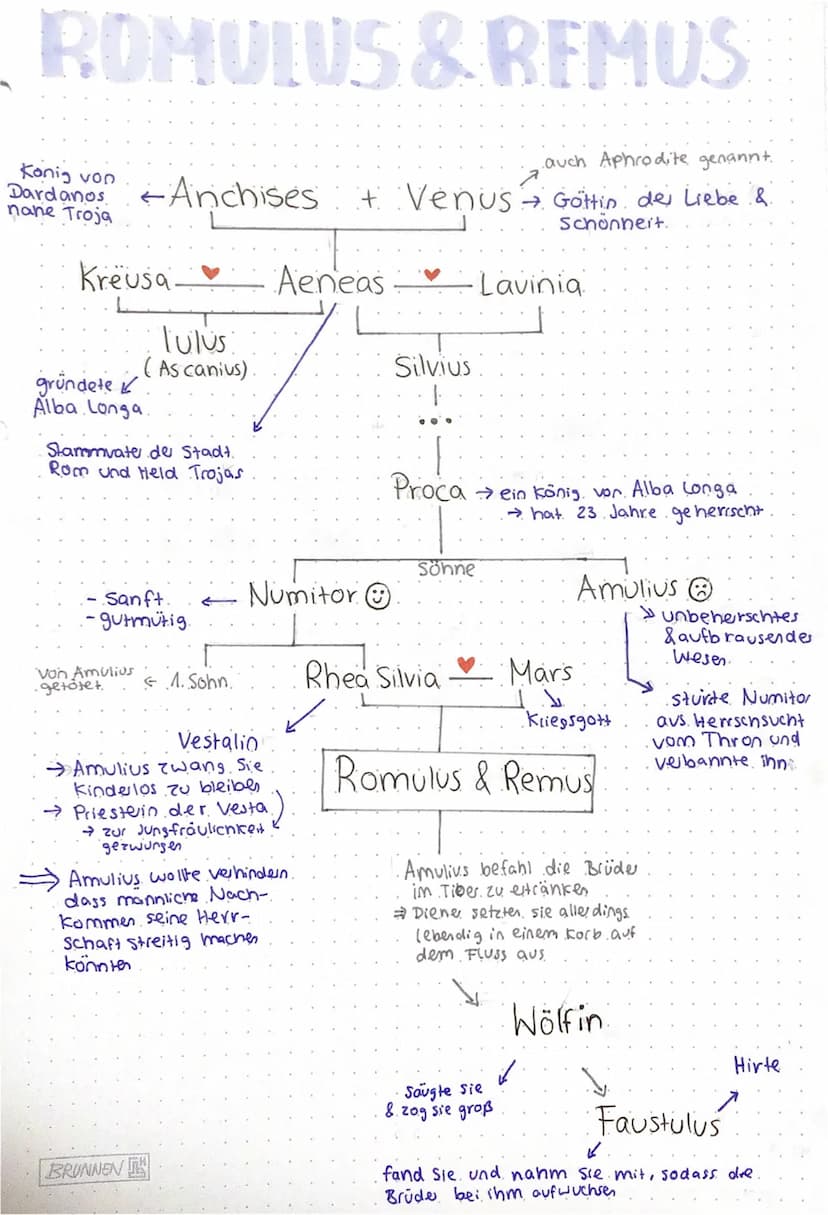 ROMULUS & REMUS
auch Aphrodite genannt.
König von
Dardanos
nahe Troja
← Anchises + Venus → Göttin der Liebe &
Schönheit.
Krëusa ♥ Aeneas ♥ Lavinia
Iulus
(Ascanius)
Silvius
gründete
Alba Longa
...
Stammvater der Stadt
Rom und Held Trojas
Proca → ein König von Alba Longa
→ hat 23 Jahre geherrscht
Söhne
- sanft
- gutmütig
← Numitor ☺
Amulius ☹
unbeherschtes
& aufbrausendes
Wesen
von Amulius
getötet
← 1. Sohn
Rhea Silvia ♥ Mars
Kriegsgott
stürzte Numitor
aus Herrschsucht
vom Thron und
verbannte ihn
Vestalin
→ Amulius zwang sie
kinderlos zu bleiben
→ Priesterin der Vesta
→ zur Jungfräulichkeit
gezwungen
⇒ Amulius wollte verhindern
dass männliche Nach-
kommen seine Herr-
schaft streitig machen
könnten
Romulus & Remus
Amulius befahl die Brüder
im Tiber zu ertränken
⇒ Diener setzten sie allerdings
lebendig in einem Korb auf
dem Fluss aus
Wölfin
säugte sie
& zog sie groß
Hirte
Faustulus
fand sie und nahm sie mit, sodass die
Brüder bei ihm aufwuchsen
BRUNNEN